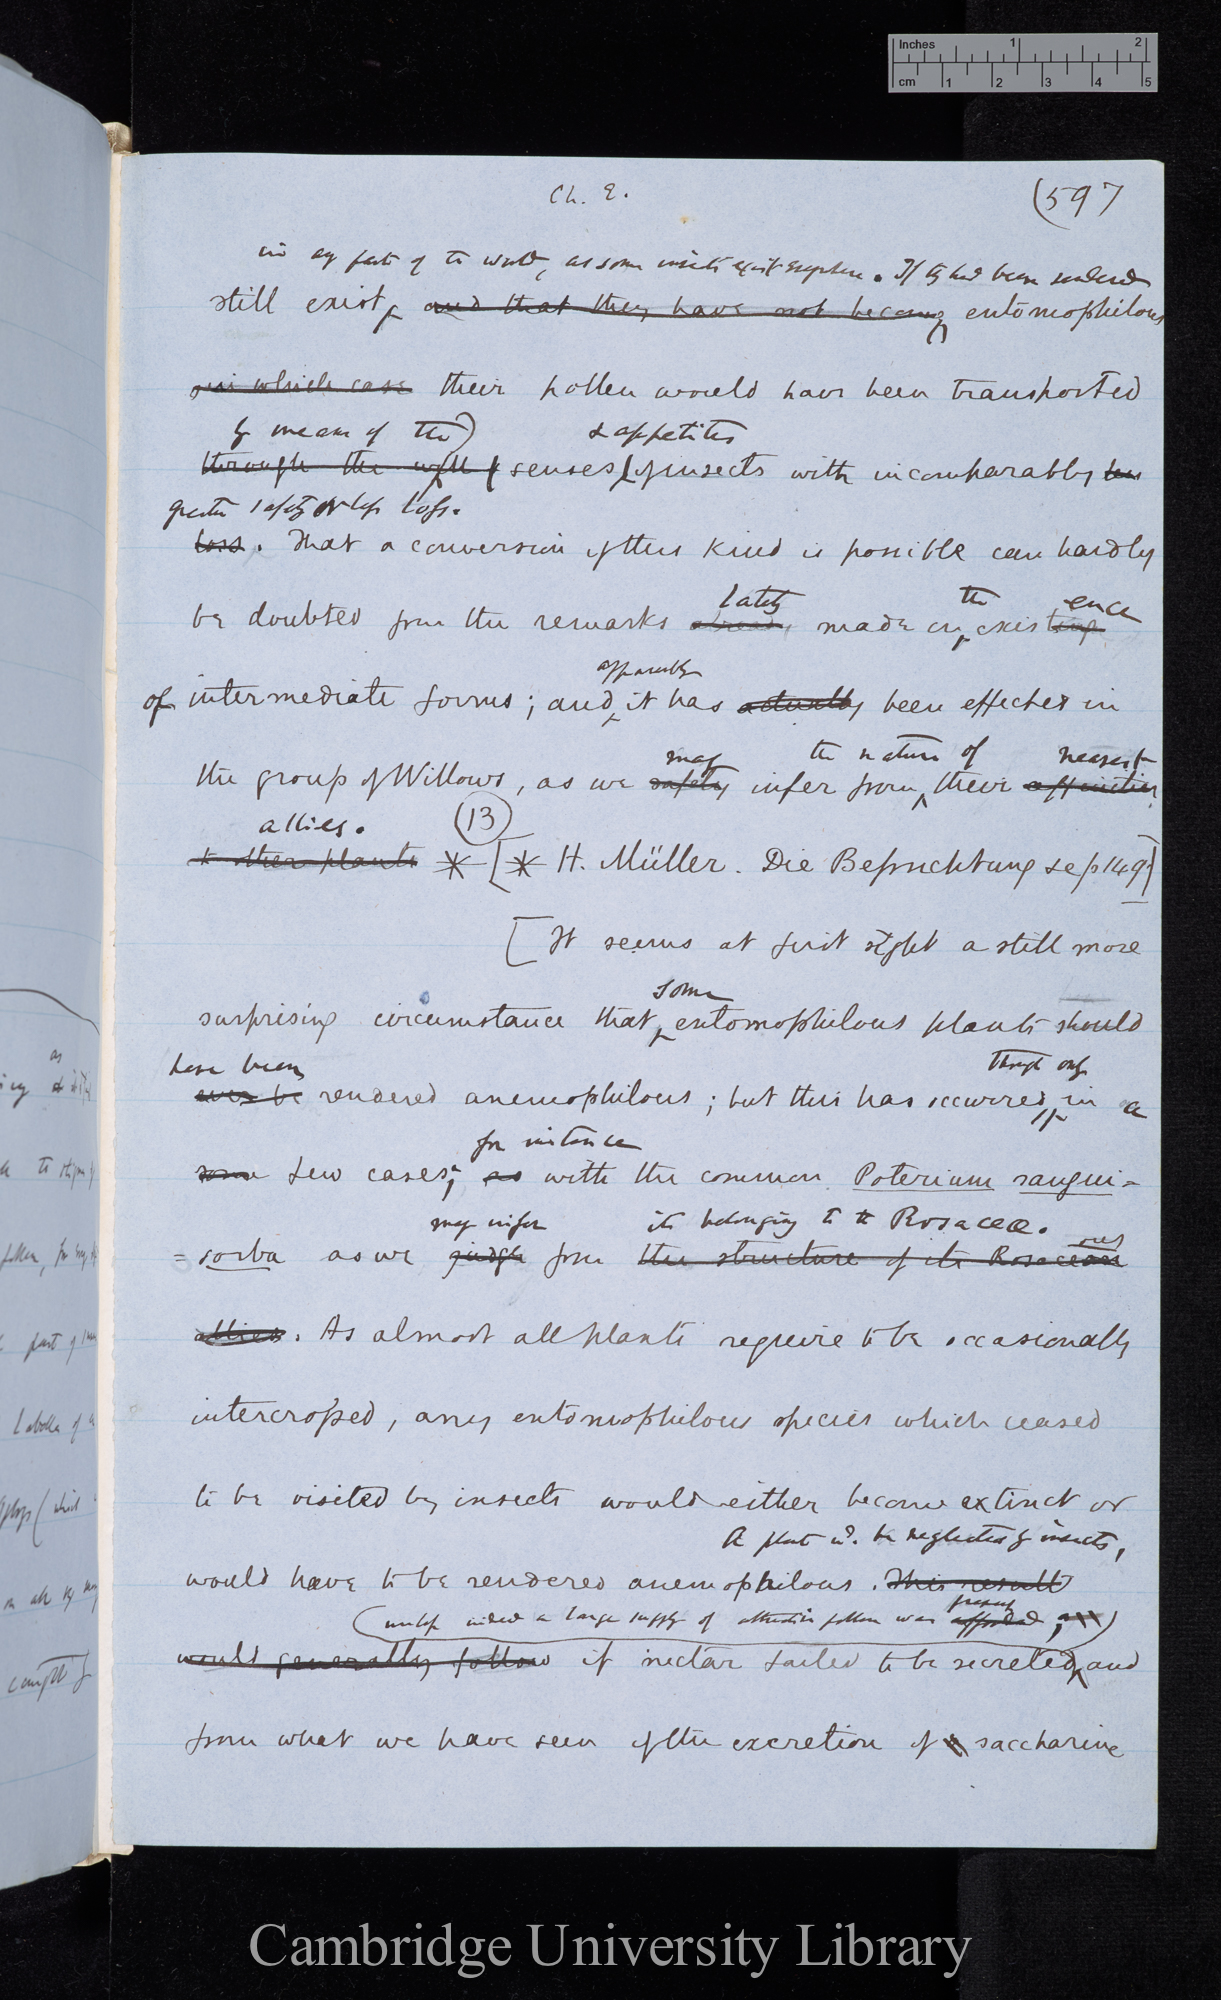 Inches 1 2
cm 1 2 3 4 5
Ch. 9.
(597
in any part of the world, as some insects exist everywhere. If they had been rendered
still exist, and that they have not become, entomophilous
in which case their pollen would have been transported
by means of the & appetites
through the senses of insects with incomparably less
greater safety or less loss.
loss. That a conversion of this kind is possible can hardly
lately the ence
be doubted from the remarks already made on existing
apparently
of intermediate forms; and it has actually been effected in
may the nature of nearest
the group of Willows, as we safely infer from their affinities
allies. 13
& other plants * [* H. Müller. Die Befruchtung &c p 149]
[It seems at first sight a still more
some
surprising circumstance that entomophilous plants should
have been though only
ever be rendered anemophilous; but this has occurred in a
for instance
some few cases; as with the common Poterium sangui-
may infer its belonging to the Rosaceae.
=sorba as we judge from the structure of its Rosaceous
allies. As almost all plants require to be occasionally
intercrossed, any entomophilous species which ceased
to be visited by insects would either become extinct or
A plant wd. be neglected by insects,
would have to be rendered anemophilous. This result
(unless indeed a large supply of attractive pollen was present afforded)
would generally follow if nectar failed to be secreted, and
from what we have seen of the excretion of saccharine
Cambridge University Library